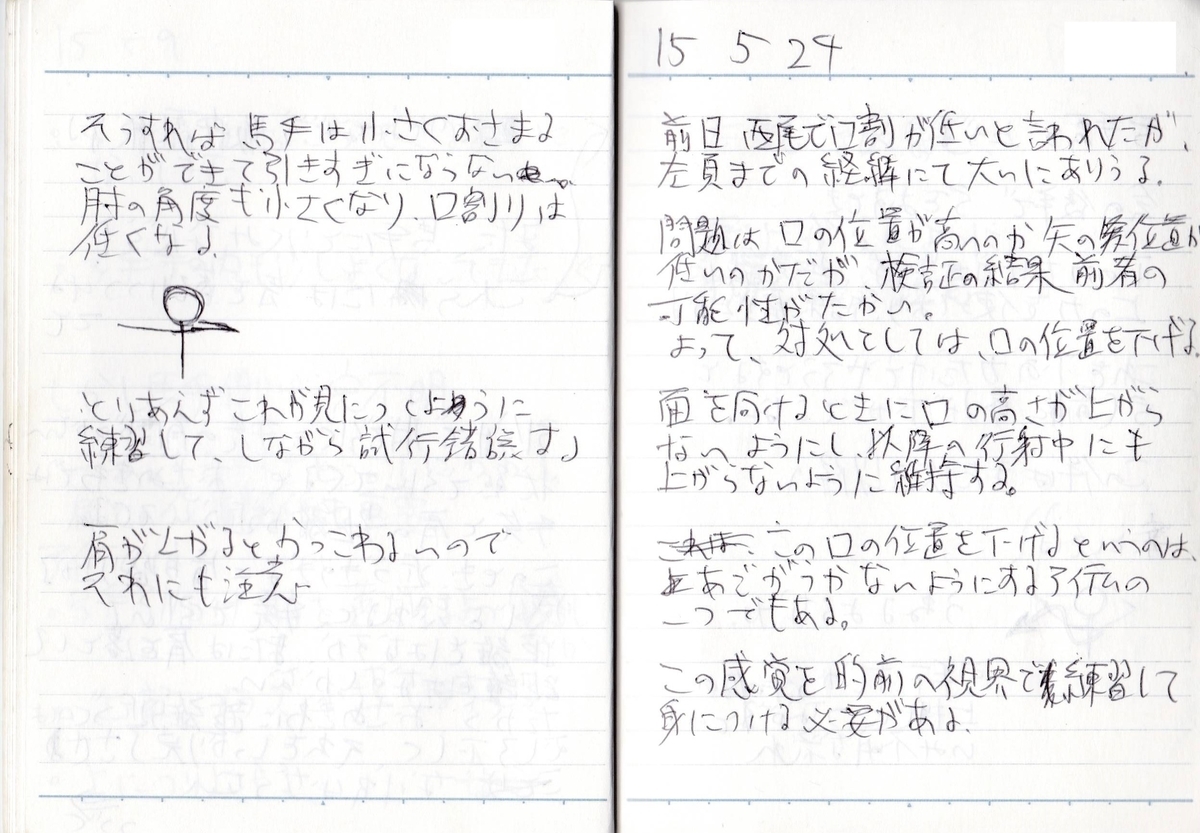 そうすれば 馬手は小さくおさまる
ことができて引きすぎにならない。
肘の角度も小さくなり、口割りは
低くなる。
とりあえずこれが見につくように
練習して、しながら試行錯誤する
肩が上がるとかっこわるいので
それにも注意
15 5 24
前日 西尾で口割が低いと言われたが、
左員までの経緯にて大いにありうる。
問題は 口の位置が高いのか 矢の位置が
低いのかだが、検証の結果 前者の
可能性がたかい。
よって、対処としては、口の位置を下げる
面を向けるときに口の高さが上がら
ないようにし、以降の行射中にも
上がらないように維持する。
この口の位置を下げるというのは、
あごがうかないようにするアイテムの
一つでもある。
この感覚を的前の視界で練習して
身につける必要がある。